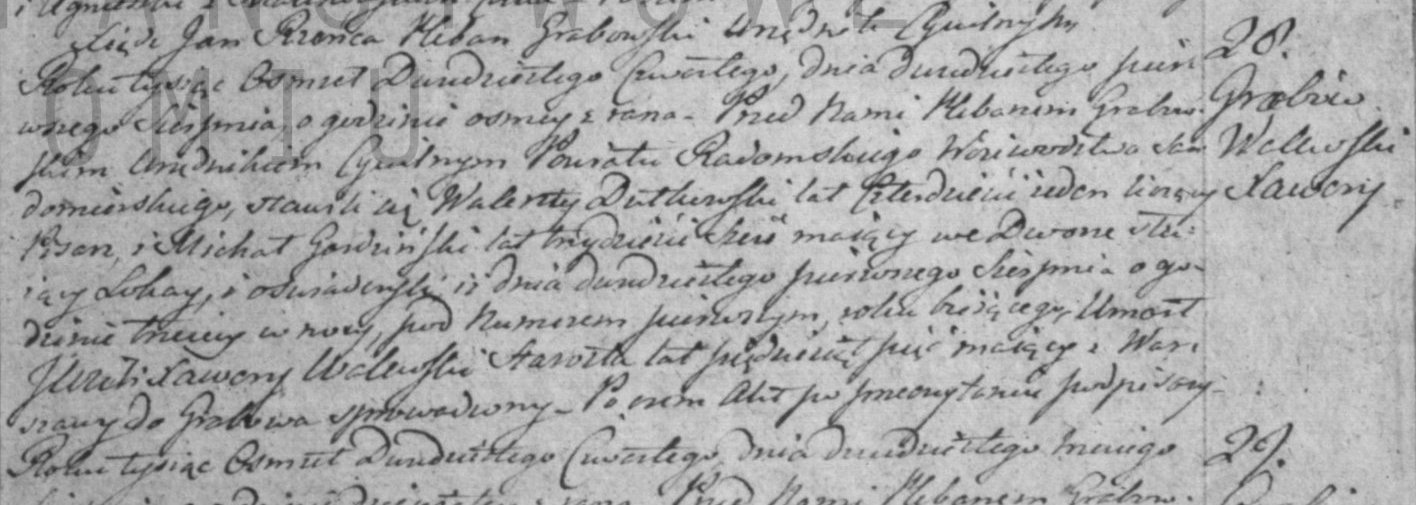 Xiądz Jan Krenca Pleban Grabowski Urzędnik Cywilny
Roku tysiąc Osmset Dwudziestego Czwartego, dnia dwudziestego pier
wszego Sierpnia, o godzinie osmey z rana - Przed Nami Plebanem Grabow
skim Urzędnikiem Cywilnym Powiatu Radomskiego Wojewodztwa San
domierskiego, stawili się Walenty Dutkowski lat Czterdzieści ieden liczący
Pisarz, i Michał lat trzydzieści sześć maiący we Dworze słu-
żący Lokay, i oświadczyli iż dnia dwudziestego pierwszego Sierpnia o go-
dzinie trzeciey w nocy, pod Numerem pierwszym, roku bieżącego, Umarł
Xawery Walewski Starosta lat pięćdziesiąt pięć maiący z War
szawy do Grabowa sprowadzony - Po czem Akt po przeczytaniu podpisany
Roku tysiąc Osmset Dwudziestego Czwartego, dnia dwudziestego trzeciego
z rana. Przed Nami Plebanem Grabow-
28.
Grabów
Walewski
Xawery
29.